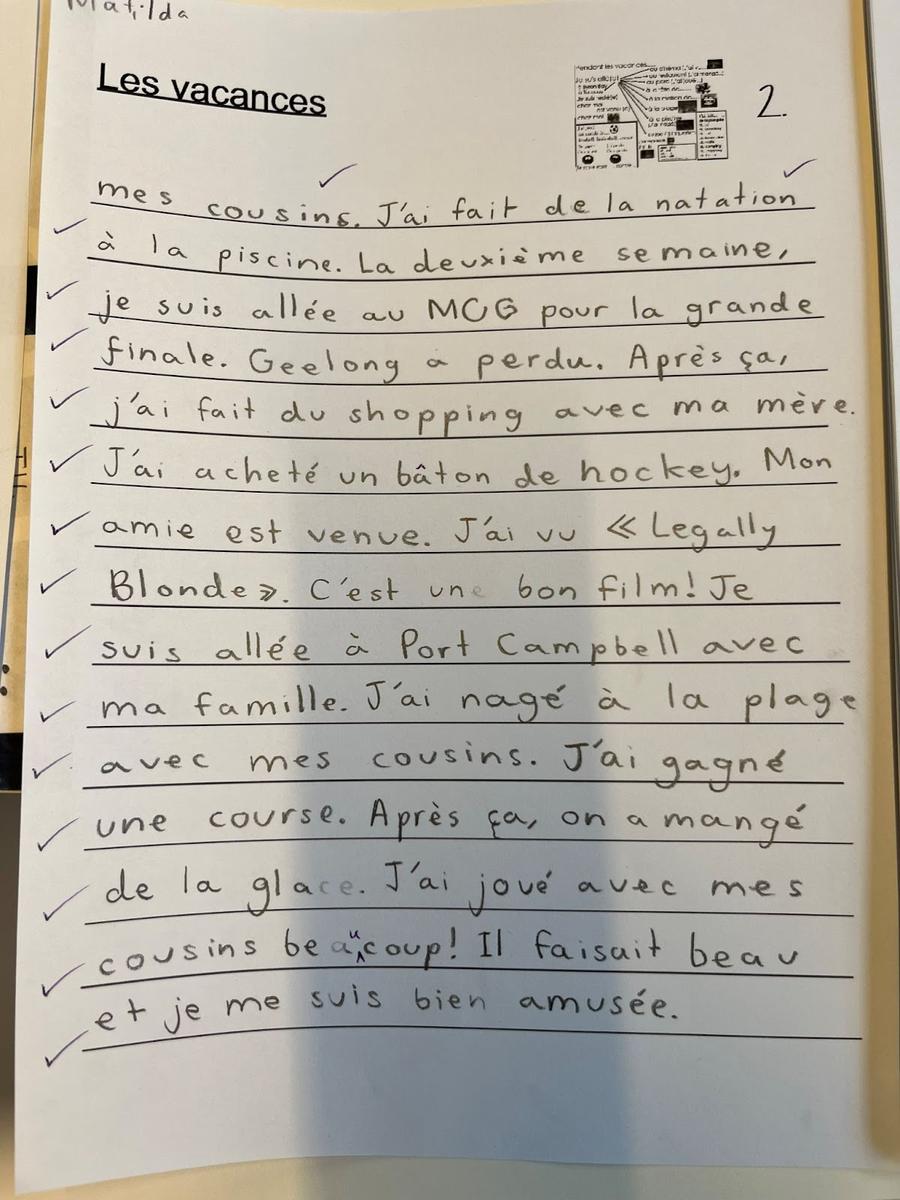 Matilda
Les vacances
2.
mes cousins. J'ai fait de la natation
à la piscine. La deuxième semaine,
je suis allée au MCG pour la grande
finale. Geelong a perdu. Après ça,
j'ai fait du shopping avec ma mère.
J'ai acheté un bâton de hockey. Mon
amie est venue. J'ai vu « Legally
Blonde ». C'est une bon film! Je
suis allée à Port Campbell avec
ma famille. J'ai nagé à la plage
avec mes cousins. J'ai gagné
une course. Après ça, on a mangé
de la glace. J'ai joué avec mes
cousins beaucoup! Il faisait beau
et je me suis bien amusée.